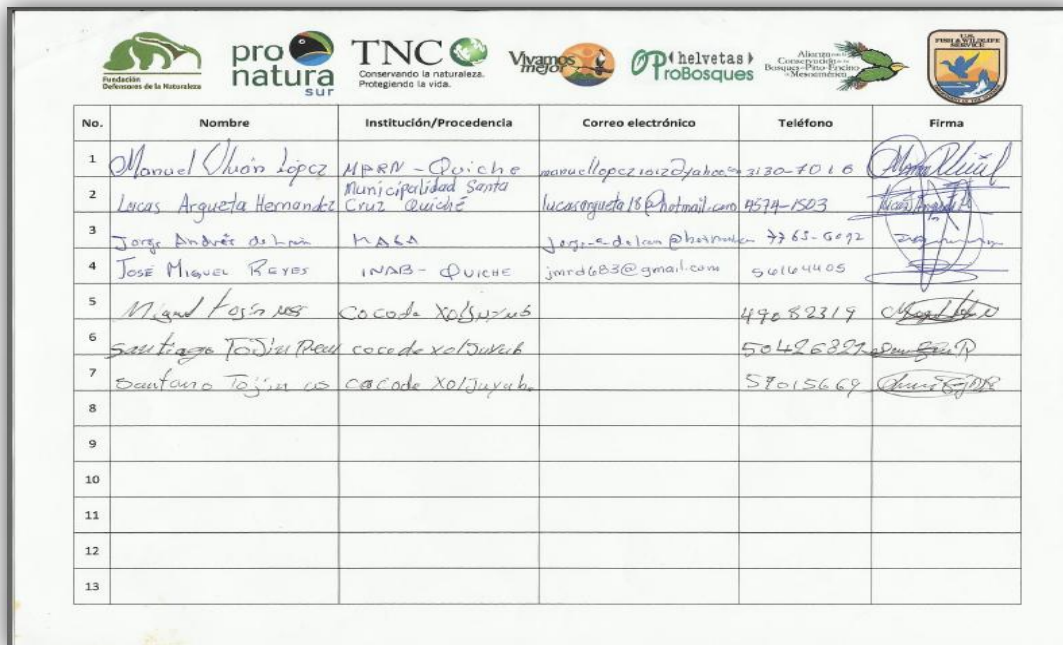 Fundación
Defensores de la Naturaleza
pro
natura
sur
TNC
Conservando la naturaleza.
Protegiendo la vida.
Vivamos
mejor
helvetas
ProBosques
Alianza para la
Conservación de los
Bosques de Pino-Encino
de Mesoamérica
U.S.
FISH & WILDLIFE
SERVICE
No. Nombre Institución/Procedencia Correo electrónico Teléfono Firma
1 Manuel López MARN - Quiche 3130-7016
2 Lucas Argueta Hernandez Municipalidad Santa
Cruz Quiché lucasargueta18@hotmail.com 4574-1503
3 Jorge Andrés de León MAGA 7765-6092
4 José Miguel Reyes INAB - Quiche jmrd683@gmail.com 56164405
5 Miguel Tojín cocode Xoljuyub 49082319
6 Santiago Tojín cocode xoljuyub 50426321
7 Tojín cocode Xoljuyub 57015669
8
9
10
11
12
13